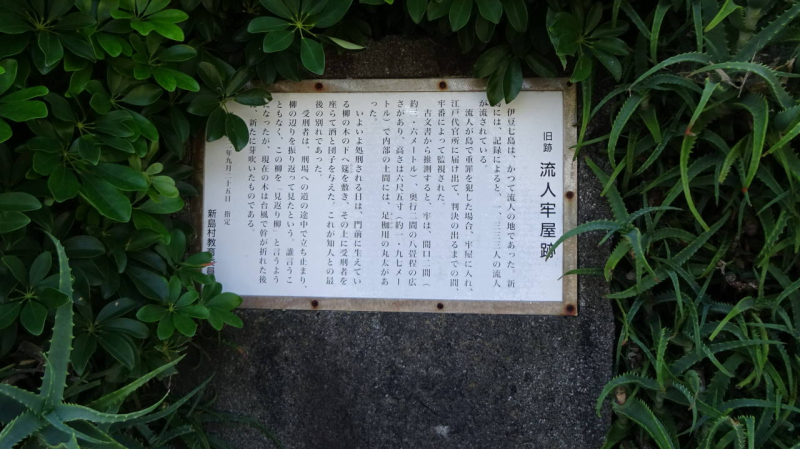 旧跡 流人牢屋跡
伊豆七島は、かつて流人の地であった。新
には、記録によると、一、三三三人の流人
が流されている。
流人が島で重罪を犯した場合、牢屋に入れ、
江戸代官所に届け出て、判決の出るまでの間、
牢番によって監視された。
古文書から推測すると、牢は、間口二間(
約三・六メートル)、奥行二間の八畳程の広
さがあり、高さは六尺五寸(約一・九七メー
トル)で内部の土間には、足枷用の丸太があ
った。
いよいよ処刑される日は、門前に生えてい
る柳の木の下へ筵を敷き、その上に受刑者を
座らて酒と団子を与えた。これが知人との最
後の別れであった。
受刑者は、刑場への道の途中で立ち止まり、
柳の辺りを振り返って見たという。誰言うこ
ともなく、この柳を「見返り柳」と言うよう
なったが、現在の木は台風で幹が折れた後
新たに芽吹いたものである。
年九月二十五日 指定
新島村教育委員